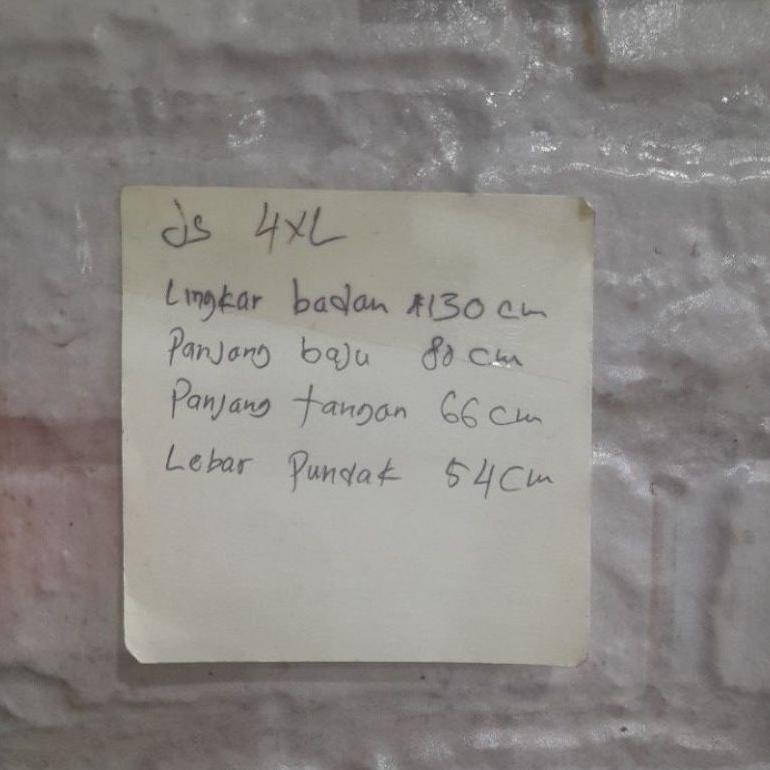 Js 4XL
Lingkar badan 130 cm
Panjang baju 80 cm
Panjang tangan 66 cm
Lebar Pundak 54 cm